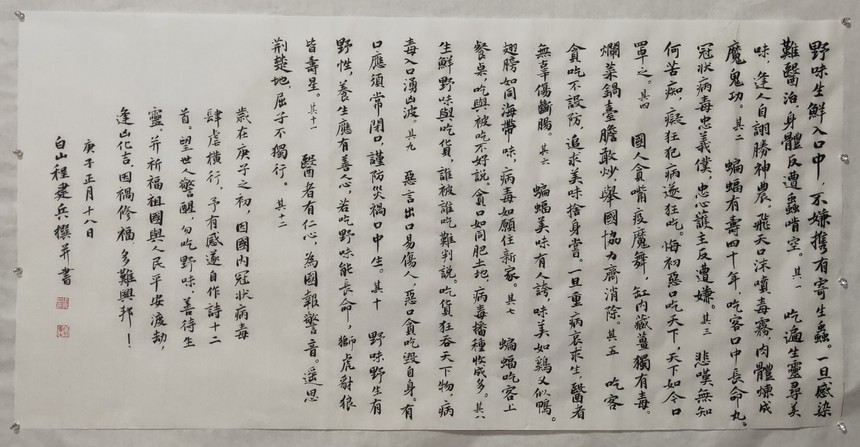 野味生鮮入口中，不嫌携有寄生蟲。一旦感染
難醫治，身體反遭蟲啃空。其一　吃遍生靈尋美
味，逢人自詡勝神農。飛天口沫噴毒霧，肉體煉成
魔鬼功。其二　蝙蝠有壽四十年，吃客口中長命丸。
冠狀病毒忠義僕，忠心護主反遭嫌。其三　悲嘆無知
何苦痴，癡狂犯病遂狂吃。悔初惡口吃天下，天下如今口
罩之。其四　國人貪嘴疫魔舞，缸內藏薑獨有毒。
爛菜鍋臺膽敢炒，舉國協力齊消除。其五　吃客
貪吃不設防，追求美味捨身嘗。一旦重病哀求生，醫者
無辜傷斷腸。其六　蝙蝠美味有人誇，味美如鷄又似鴨。
翅膀如同海帶味，病毒如願住新家。其七　蝙蝠吃客上
餐桌，吃與被吃不好說。貪口如同肥土地，病毒播種收成多。其八
生鮮野味與吃貨，誰被誰吃難判說。吃貨狂吞天下物，病
毒入口湧山波。其九　惡言出口易傷人，惡口貪吃毀自身。有
口應須常閉口，謹防災禍口中生。其十　野味野生有
野性，養生應有善人心。若吃野味能長命，獅虎豺狼
皆壽星。其十一　醫者有仁心，為國報警音。遥思
荊楚地，屈子不獨行。其十二
歲在庚子之初，因國內冠狀病毒
肆虐橫行，予有感遂自作詩十二
首。望世人警醒，勿吃野味，善待生
靈，并祈福祖國與人民平安渡劫，
逢凶化吉，因禍修福，多難興邦！
庚子正月十八日
白山程建兵撰并書